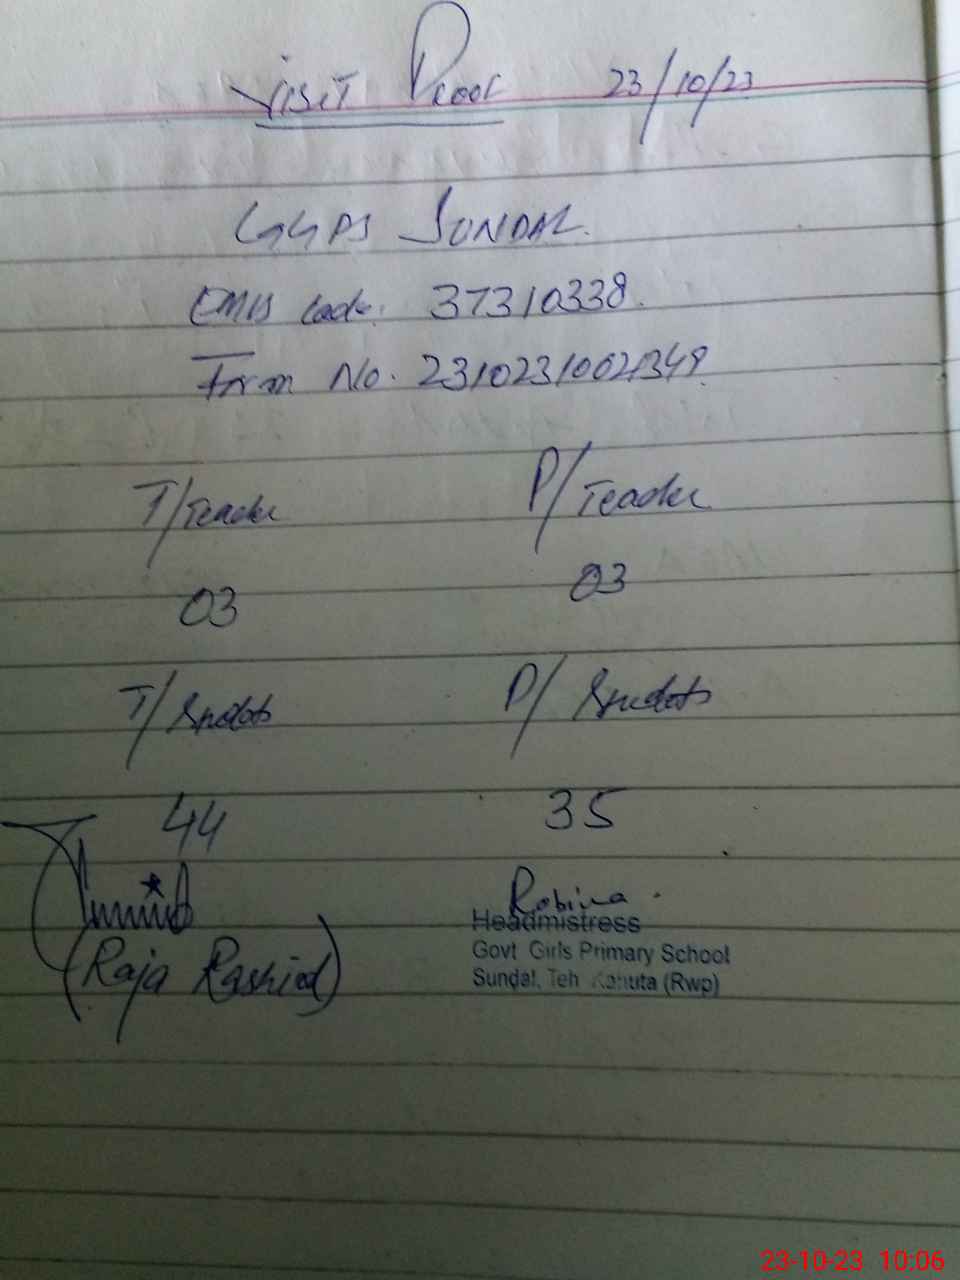 Visit Proof 23/10/23
GGPS SUNDAL.
EMIS Code. 37310338.
Form No. 23102310021349
T/Teacher P/Teacher
03 03
T/Students P/Students
44 35
Robina.
(Raja Rashied)
Headmistress
Govt Girls Primary School
Sundal, Teh Kahuta (Rwp)
23-10-23 10:06